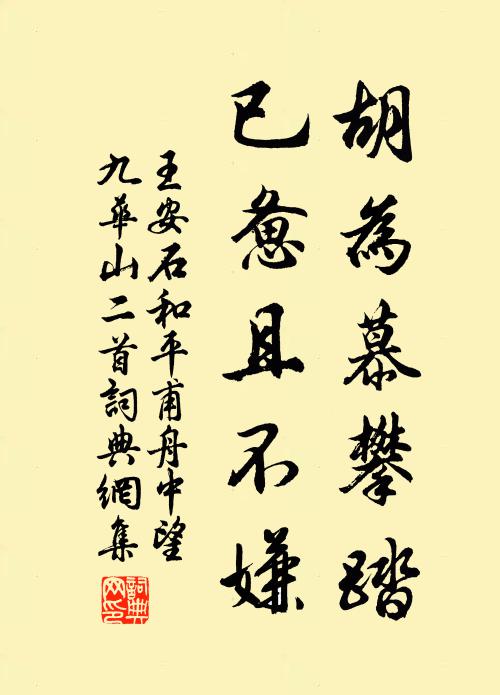 胡為慕攀踏
已惫且不嫌
王安石和平甫舟中望
九華山二首詞典網集
詞典网印